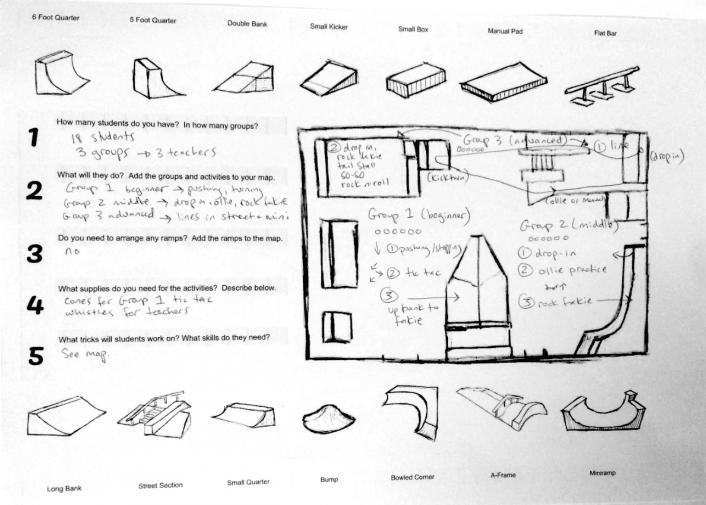 6 Foot Quarter
5 Foot Quarter
Double Bank
Small Kicker
Small Box
Manual Pad
Flat Bar
1
How many students do you have? In how many groups?
18 students
3 groups → 3 teachers
2
What will they do? Add the groups and activities to your map.
Group 1 beginner → pushing, turning
Group 2 middle → drop in, ollie, rock fakie
Group 3 advanced → lines in street + mini
3
Do you need to arrange any ramps? Add the ramps to the map.
no
4
What supplies do you need for the activities? Describe below.
cones for Group 1 tic tac
whistles for teachers
5
What tricks will students work on? What skills do they need?
See map.
Group 3 (advanced)
oooooo
① line
(drop in)
② drop in,
rock fakie
tail stall
50-50
rock n roll
(kickturn)
(ollie or manual)
Group 1 (beginner)
oooooo
↓ ① pushing/stopping
② tic tac
③
up bank to
fakie
Group 2 (middle)
oooooo
① drop-in
② ollie practice
③ rock fakie
Long Bank
Street Section
Small Quarter
Bump
Bowled Corner
A-Frame
Miniramp